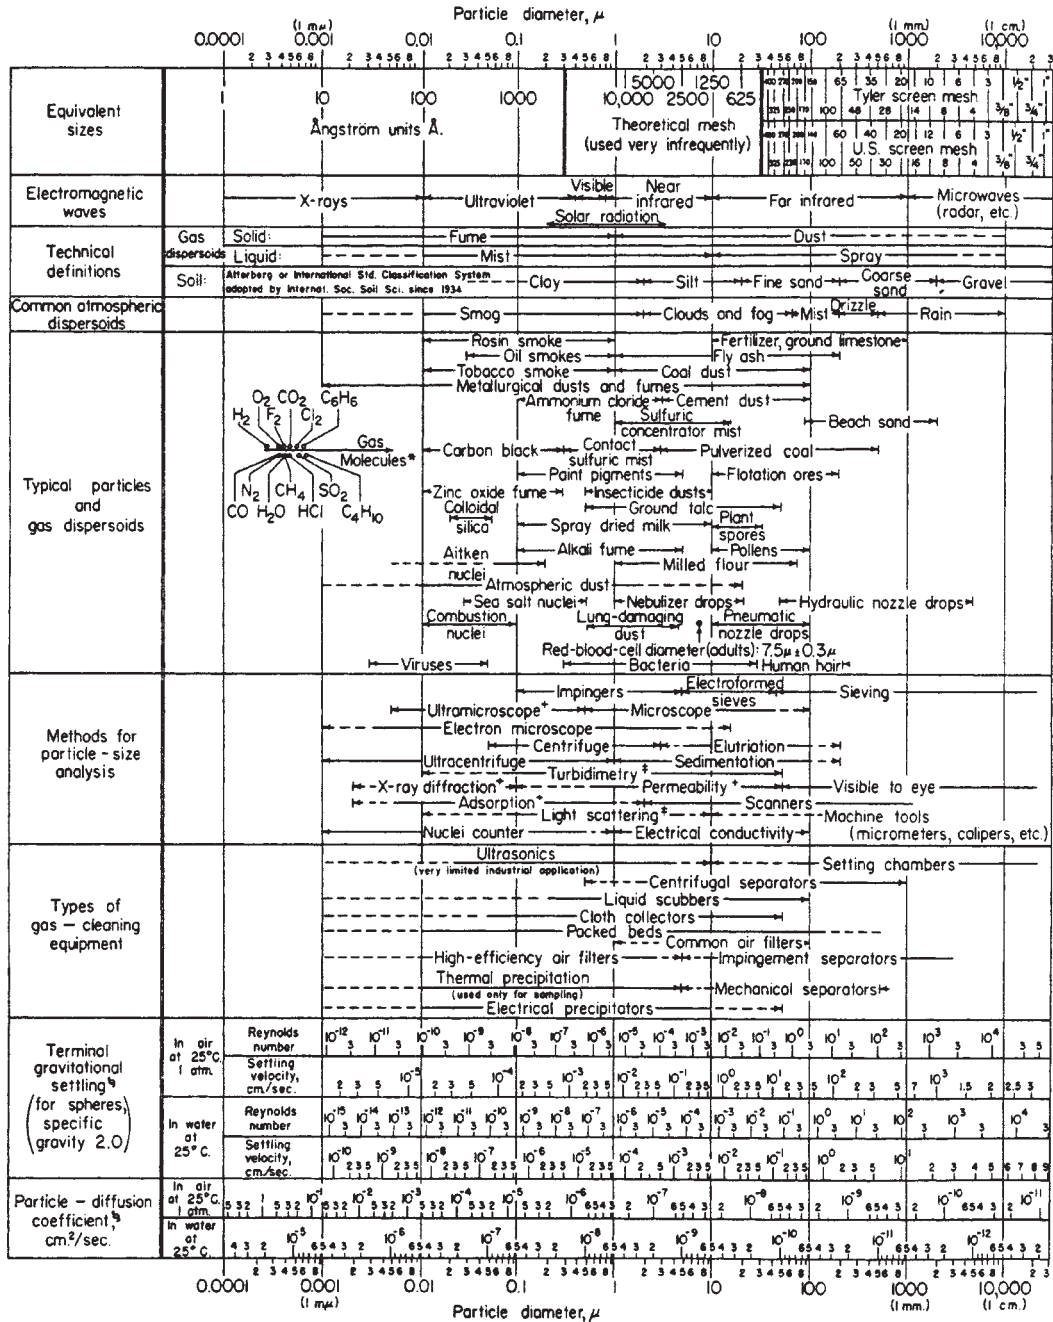 Particle diameter, μ
(1 mμ) (1 mm.) (1 cm.)
0.0001 0.001 0.01 0.1 1 10 100 1000 10,000
2 3 4 5 6 8 2 3 4 5 6 8 2 3 4 5 6 8 2 3 4 5 6 8 2 3 4 5 6 8 2 3 4 5 6 8 2 3 4 5 6 8 2 3 4 5 6 8 2 3
Equivalent sizes
1 10 100 1000
Ångström units Å.
5000 1250
10,000 2500 625
Theoretical mesh
(used very infrequently)
65 35 20 10 6 3 1/2" 1"
Tyler screen mesh
100 48 28 14 8 4 3/8" 3/4"
60 40 20 12 6 3 1/2" 1"
U.S. screen mesh
100 50 30 16 8 4 3/8" 3/4"
Electromagnetic waves
X-rays Ultraviolet Visible Near infrared Far infrared Microwaves (radar, etc.)
Solar radiation
Technical definitions
Gas dispersoids
Solid: Fume Dust
Liquid: Mist Spray
Soil: Atterberg or International Std. Classification System
adopted by Internat. Soc. Soil Sci. since 1934
Clay Silt Fine sand Coarse sand Gravel
Common atmospheric dispersoids
Smog Clouds and fog Mist Drizzle Rain
Typical particles and gas dispersoids
Rosin smoke Fertilizer, ground limestone
Oil smokes Fly ash
Tobacco smoke Coal dust
Metallurgical dusts and fumes
O2 CO2 C6H6
H2 F2 Cl2
Ammonium cloride fume Cement dust
Sulfuric concentrator mist Beach sand
Gas Molecules*
Carbon black Contact sulfuric mist Pulverized coal
Paint pigments Flotation ores
N2 CH4 SO2
CO H2O HCl C4H10
Zinc oxide fume Insecticide dusts
Colloidal silica Ground talc
Spray dried milk Plant spores
Alkali fume Pollens
Aitken nuclei Milled flour
Atmospheric dust
Sea salt nuclei Nebulizer drops Hydraulic nozzle drops
Combustion nuclei Lung-damaging dust Pneumatic nozzle drops
Red-blood-cell diameter (adults): 7.5μ ± 0.3μ
Viruses Bacteria Human hair
Methods for particle-size analysis
Impingers Electroformed sieves Sieving
Ultramicroscope+ Microscope
Electron microscope
Centrifuge Elutriation
Ultracentrifuge Sedimentation
Turbidimetry‡
X-ray diffraction+ Permeability+ Visible to eye
Adsorption+ Scanners
Light scattering‡ Machine tools
Nuclei counter Electrical conductivity (micrometers, calipers, etc.)
Types of gas-cleaning equipment
Ultrasonics
(very limited industrial application)
Settling chambers
Centrifugal separators
Liquid scubbers
Cloth collectors
Packed beds
Common air filters
High-efficiency air filters Impingement separators
Thermal precipitation
(used only for sampling)
Mechanical separators
Electrical precipitators
Terminal gravitational settling
(for spheres, specific gravity 2.0)
In air at 25°C. 1 atm.
Reynolds number
10-12 10-11 10-10 10-9 10-8 10-7 10-6 10-5 10-4 10-3 10-2 10-1 100 101 102 103 104
Settling velocity, cm./sec.
10-5 10-4 10-3 10-2 10-1 100 101 102 103
In water at 25°C.
Reynolds number
10-15 10-14 10-13 10-12 10-11 10-10 10-9 10-8 10-7 10-6 10-5 10-4 10-3 10-2 10-1 100 101 102 103 104
Settling velocity, cm./sec.
10-10 10-9 10-8 10-7 10-6 10-5 10-4 10-3 10-2 10-1 100 101
Particle-diffusion coefficient, cm.2/sec.
In air at 25°C. 1 atm.
10-1 10-2 10-3 10-4 10-5 10-6 10-7 10-8 10-9 10-10 10-11
In water at 25°C.
10-5 10-6 10-7 10-8 10-9 10-10 10-11 10-12
2 3 4 5 6 8 2 3 4 5 6 8 2 3 4 5 6 8 2 3 4 5 6 8 2 3 4 5 6 8 2 3 4 5 6 8 2 3 4 5 6 8 2 3 4 5 6 8 2 3
0.0001 0.001 0.01 0.1 1 10 100 1000 10,000
(1 mμ) (1 mm.) (1 cm.)
Particle diameter, μ